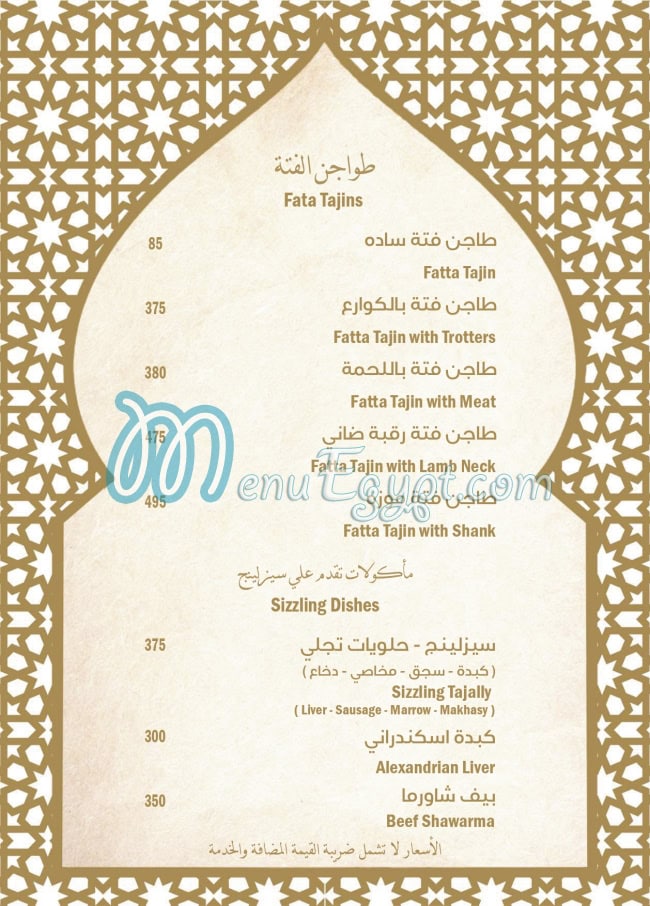 طواجن الفتة
Fata Tajins
طاجن فتة ساده
85
Fatta Tajin
طاجن فتة بالكوارع
375
Fatta Tajin with Trotters
طاجن فتة باللحمة
380
Fatta Tajin with Meat
طاجن فتة رقبة ضاني
475
Fatta Tajin with Lamb Neck
طاجن فتة موزة
495
Fatta Tajin with Shank
MenuEgypt.com
مأكولات تقدم علي سيزلينج
Sizzling Dishes
سيزلينج - حلويات تجلي
375
( كبدة - سجق - مخاصي - دخاع )
Sizzling Tajally
( Liver - Sausage - Marrow - Makhasy )
كبدة اسكندراني
300
Alexandrian Liver
بيف شاورما
350
Beef Shawarma
الأسعار لا تشمل ضريبة القيمة المضافة والخدمة